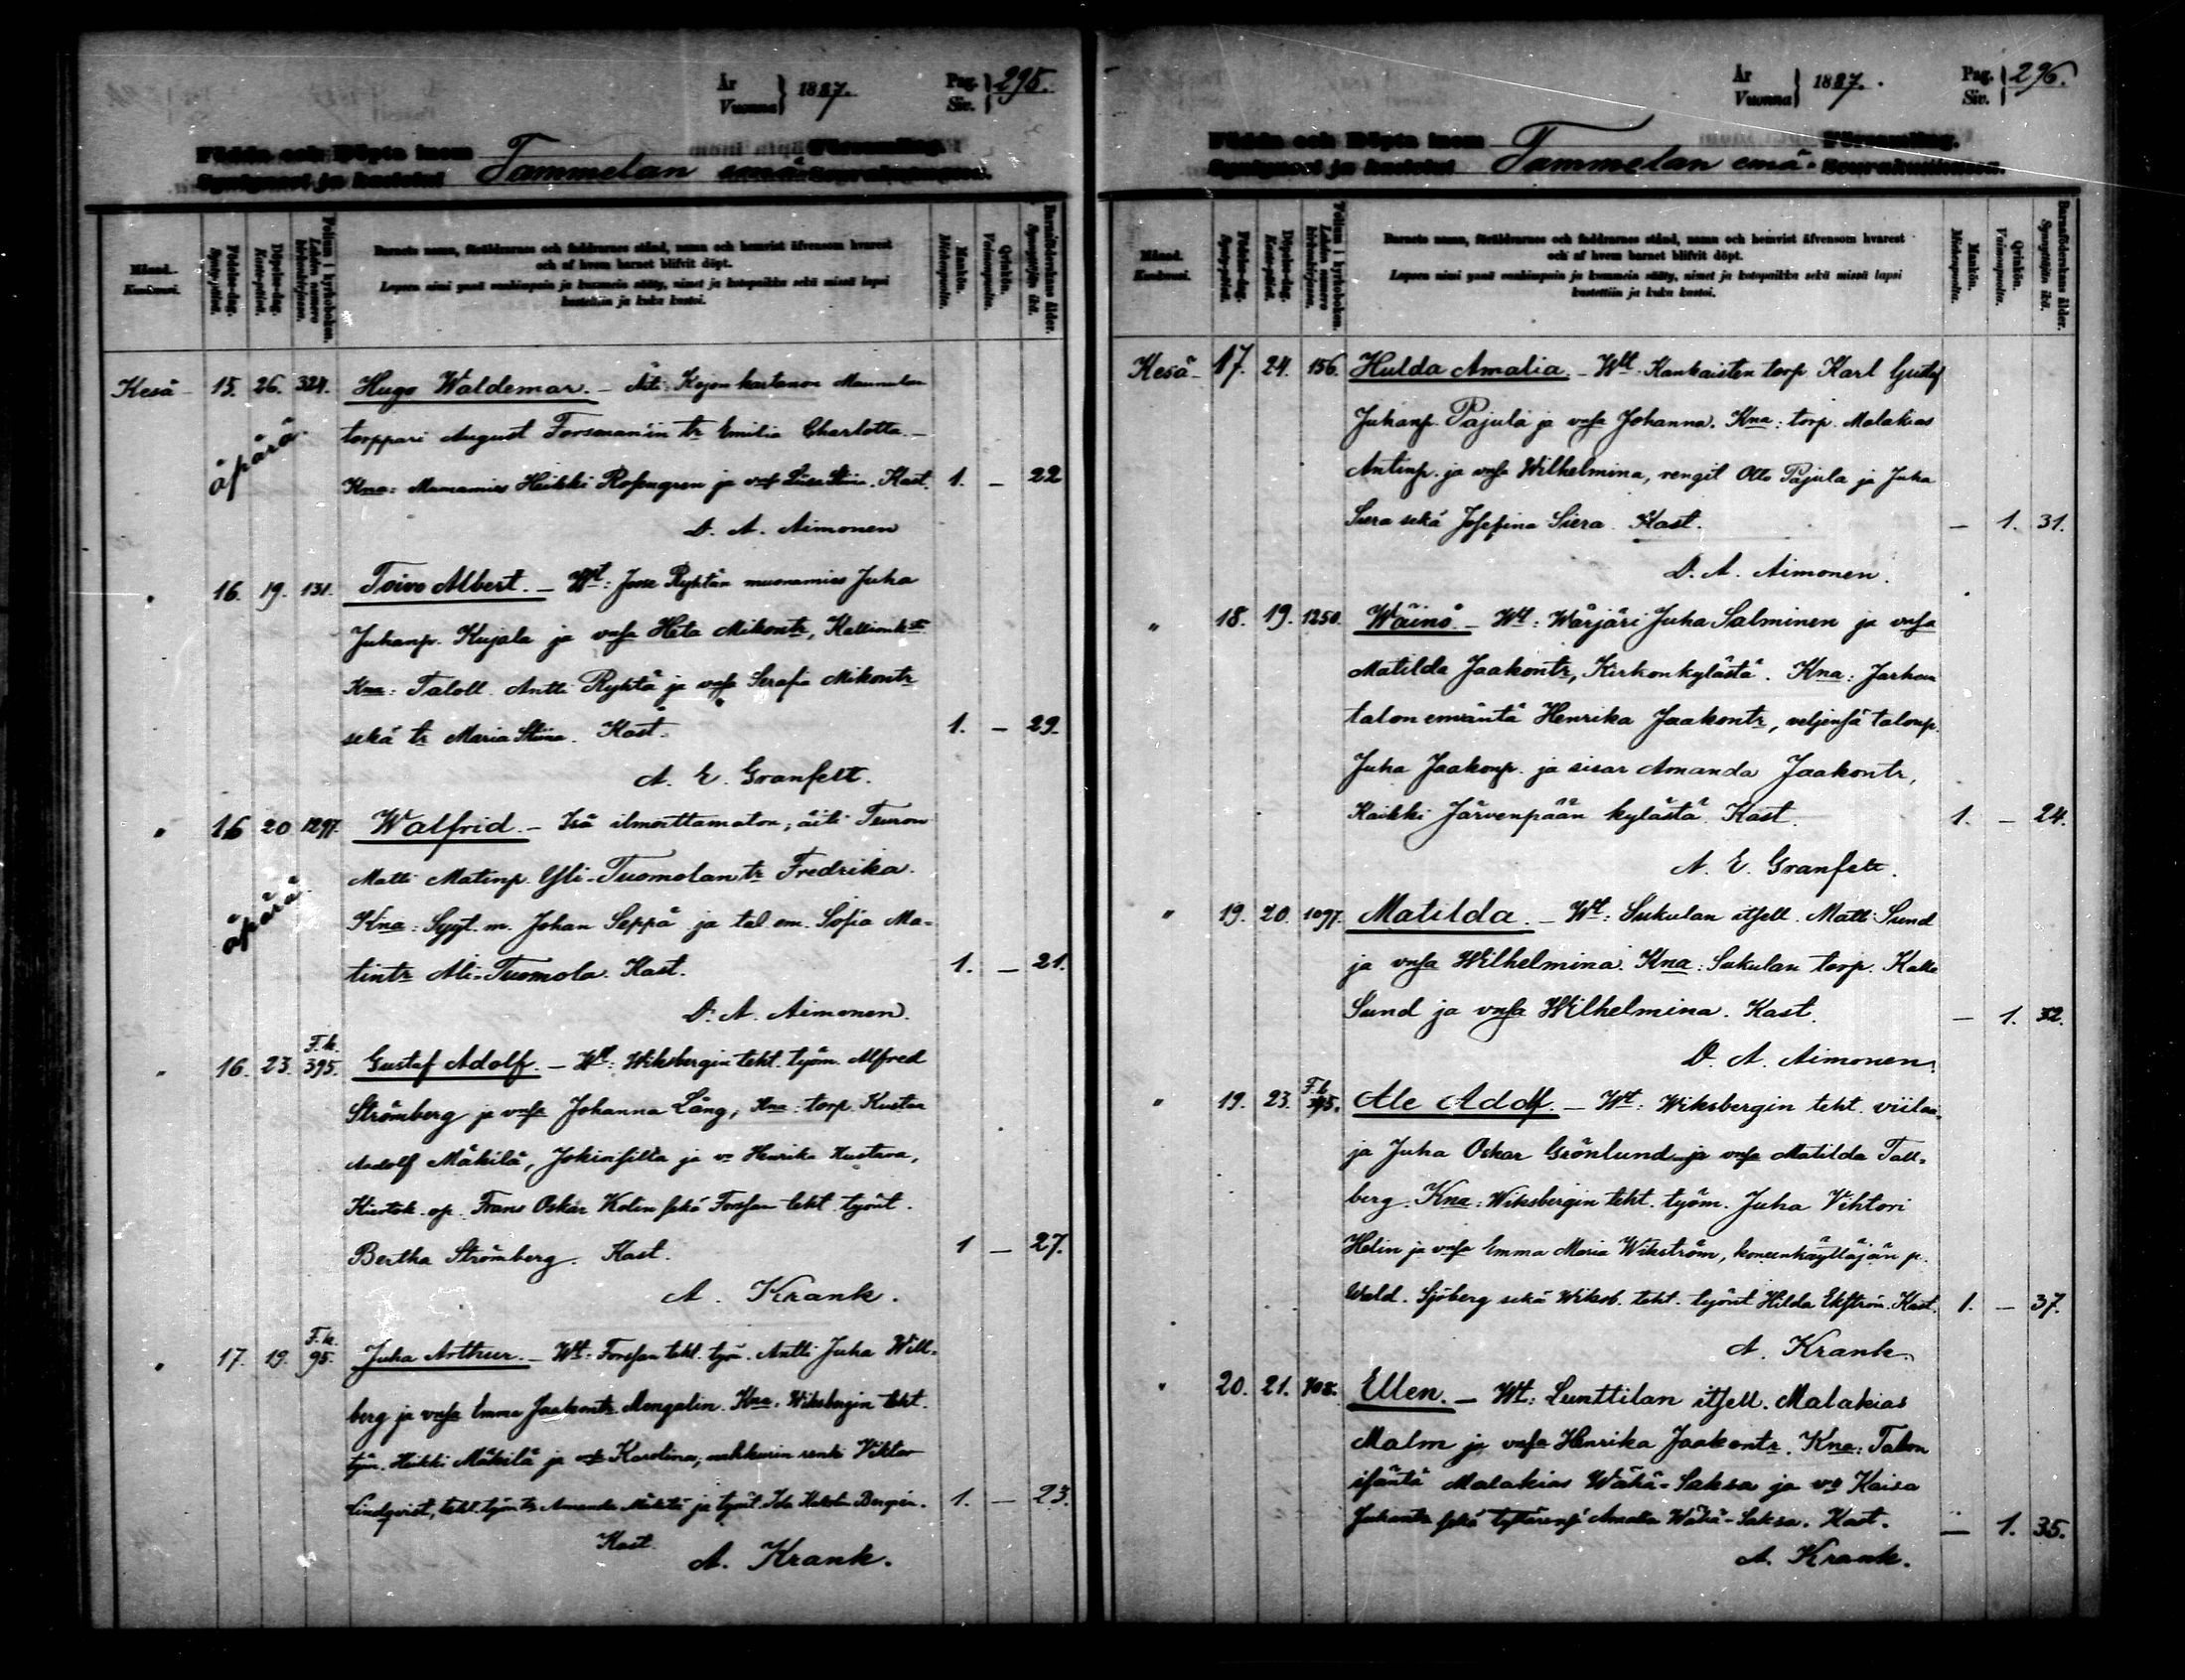 År
Vuonna } 1887.
Pag.
Siv. } 295.
Födda och Döpta inom Församling.
Syntyneet ja kastetut Tammelan emä Seurakunnassa.
Månad.
Kuukausi.
Födelse-dag.
Synty-päivä.
Döpelse-dag.
Kaste-päivä.
Folium i kyrkoboken.
Lehden numero kirkonkirjassa.
Barnets namn, föräldrarnes och faddrarnes stånd, namn och hemvist äfvensom hvarest
och af hvem barnet blifvit döpt.
Lapsen nimi ynnä vanhempain ja kummein sääty, nimet ja kotopaikka sekä missä lapsi
kastettiin ja kuka kastoi.
Mankön.
Miehenpuolta.
Qvinkön.
Vaimonpuolta.
Barnaföderskans ålder.
Synnyttäjän ikä.
Kesä 15. 26. 324. Hugo Waldemar. – Äiti: Kojon kartanon
torppari August Forsman'in tr Emilia Charlotta. –
äpärä
Kna: Heikki Rosengren ja Kast. 1. – 22
D. A. Aimonen
" 16. 19. 131. Toivo Albert. – Wt: Ryhtän muonamies Juha
Juhanp. Kujala ja vmsa Heta Mikontr,
Kna: Taloll. Antti Ryhtä ja vmsa Serafia Mikontr
sekä tr Maria Stiina. Kast. 1. – 29.
A. E. Granfelt.
" 16 20 1297. Walfrid. – Isä ilmoittamaton, äiti
Matti Matinp. Yli-Tuomolan tr Fredrika.
äpärä
Kna: Syyt. m. Johan Seppä ja tal. em. Sofia Ma-
tintr Ali-Tuomola. Kast. 1. – 21.
D. A. Aimonen.
" 16. 23. F.k. 395. Gustaf Adolf. – Wt: Wiksbergin teht. työm. Alfred
Strömberg ja vmsa Johanna Lång, Kna: torp. Kustaa
Aadolf Mäkilä, Jokioisilta ja vo Henrika Kustava,
Kiertok. op. Frans Oskar Kolin sekä Forssan teht. työnt.
Bertha Strömberg. Kast. 1 – 27.
A. Krank.
" 17. 19. F.k. 95. Juha Arthur. – Wt: Forssan teht. työm. Antti Juha Will-
berg ja vmsa Emma Jaakontr Mengalin. Kna: Wiksbergin teht.
työm. Heikki Mäkilä ja Karolina, nahkurin renki Viktor
Lindqvist, teht. työm. tr Amanda Mäkilä ja työnt. Ida Bergin. 1. – 23.
Kast.
A. Krank.
År
Vuonna } 1887.
Pag.
Siv. } 296.
Födda och Döpta inom Församling.
Syntyneet ja kastetut Tammelan emä- Seurakunnassa.
Månad.
Kuukausi.
Födelse-dag.
Synty-päivä.
Döpelse-dag.
Kaste-päivä.
Folium i kyrkoboken.
Lehden numero kirkonkirjassa.
Barnets namn, föräldrarnes och faddrarnes stånd, namn och hemvist äfvensom hvarest
och af hvem barnet blifvit döpt.
Lapsen nimi ynnä vanhempain ja kummein sääty, nimet ja kotopaikka sekä missä lapsi
kastettiin ja kuka kastoi.
Mankön.
Miehenpuolta.
Qvinkön.
Vaimonpuolta.
Barnaföderskans ålder.
Synnyttäjän ikä.
Kesä 17. 24. 156. Hulda Amalia. – Wt. Kankaisten torp. Karl Gustaf
Juhanp. Pajula ja vmsa Johanna. Kna: torp. Malakias
Antinp. ja vmsa Wilhelmina, rengit Otto Pajula ja Juha
Siera sekä Josefina Siera. Kast. – 1. 31.
D. A. Aimonen.
" 18. 19. 1250. Wäinö. – Wt: Wärjäri Juha Salminen ja vmsa
Matilda Jaakontr, Kirkonkylästä. Kna:
talon emäntä Henrika Jaakontr, veljensä talonp.
Juha Jaakonp. ja sisar Amanda Jaakontr,
Kaikki Järvenpään kylästä. Kast. 1. – 24.
A. E. Granfelt.
" 19. 20. 1097. Matilda. – Wt: Sukulan itsell. Matti Sund
ja vmsa Wilhelmina. Kna: Sukulan torp. Kalle
Sund ja vmsa Wilhelmina. Kast. – 1. 32.
D. A. Aimonen.
" 19. 23. F.k. Ale Adolf. – Wt: Wiksbergin teht. viilaa-
ja Juha Oskar Grönlund ja vmsa Matilda Tall-
berg. Kna: Wiksbergin teht. työm. Juha Vihtori
Helin ja vmsa Emma Maria Wikström, koneenkäyttäjän p.
Wald. Sjöberg sekä Wiksb. teht. työnt Hilda Ekström. Kast. 1. – 37.
A. Krank.
" 20. 21. 708. Ellen. – Wt: Lunttilan itsell. Malakias
Malm ja vmsa Henrika Jaakontr. Kna: Talon
isäntä Malakias Wähä-Saksa ja vo Kaisa
Juhantr sekä tyttärensä Amalia Wähä-Saksa. Kast. – 1. 35.
A. Krank.